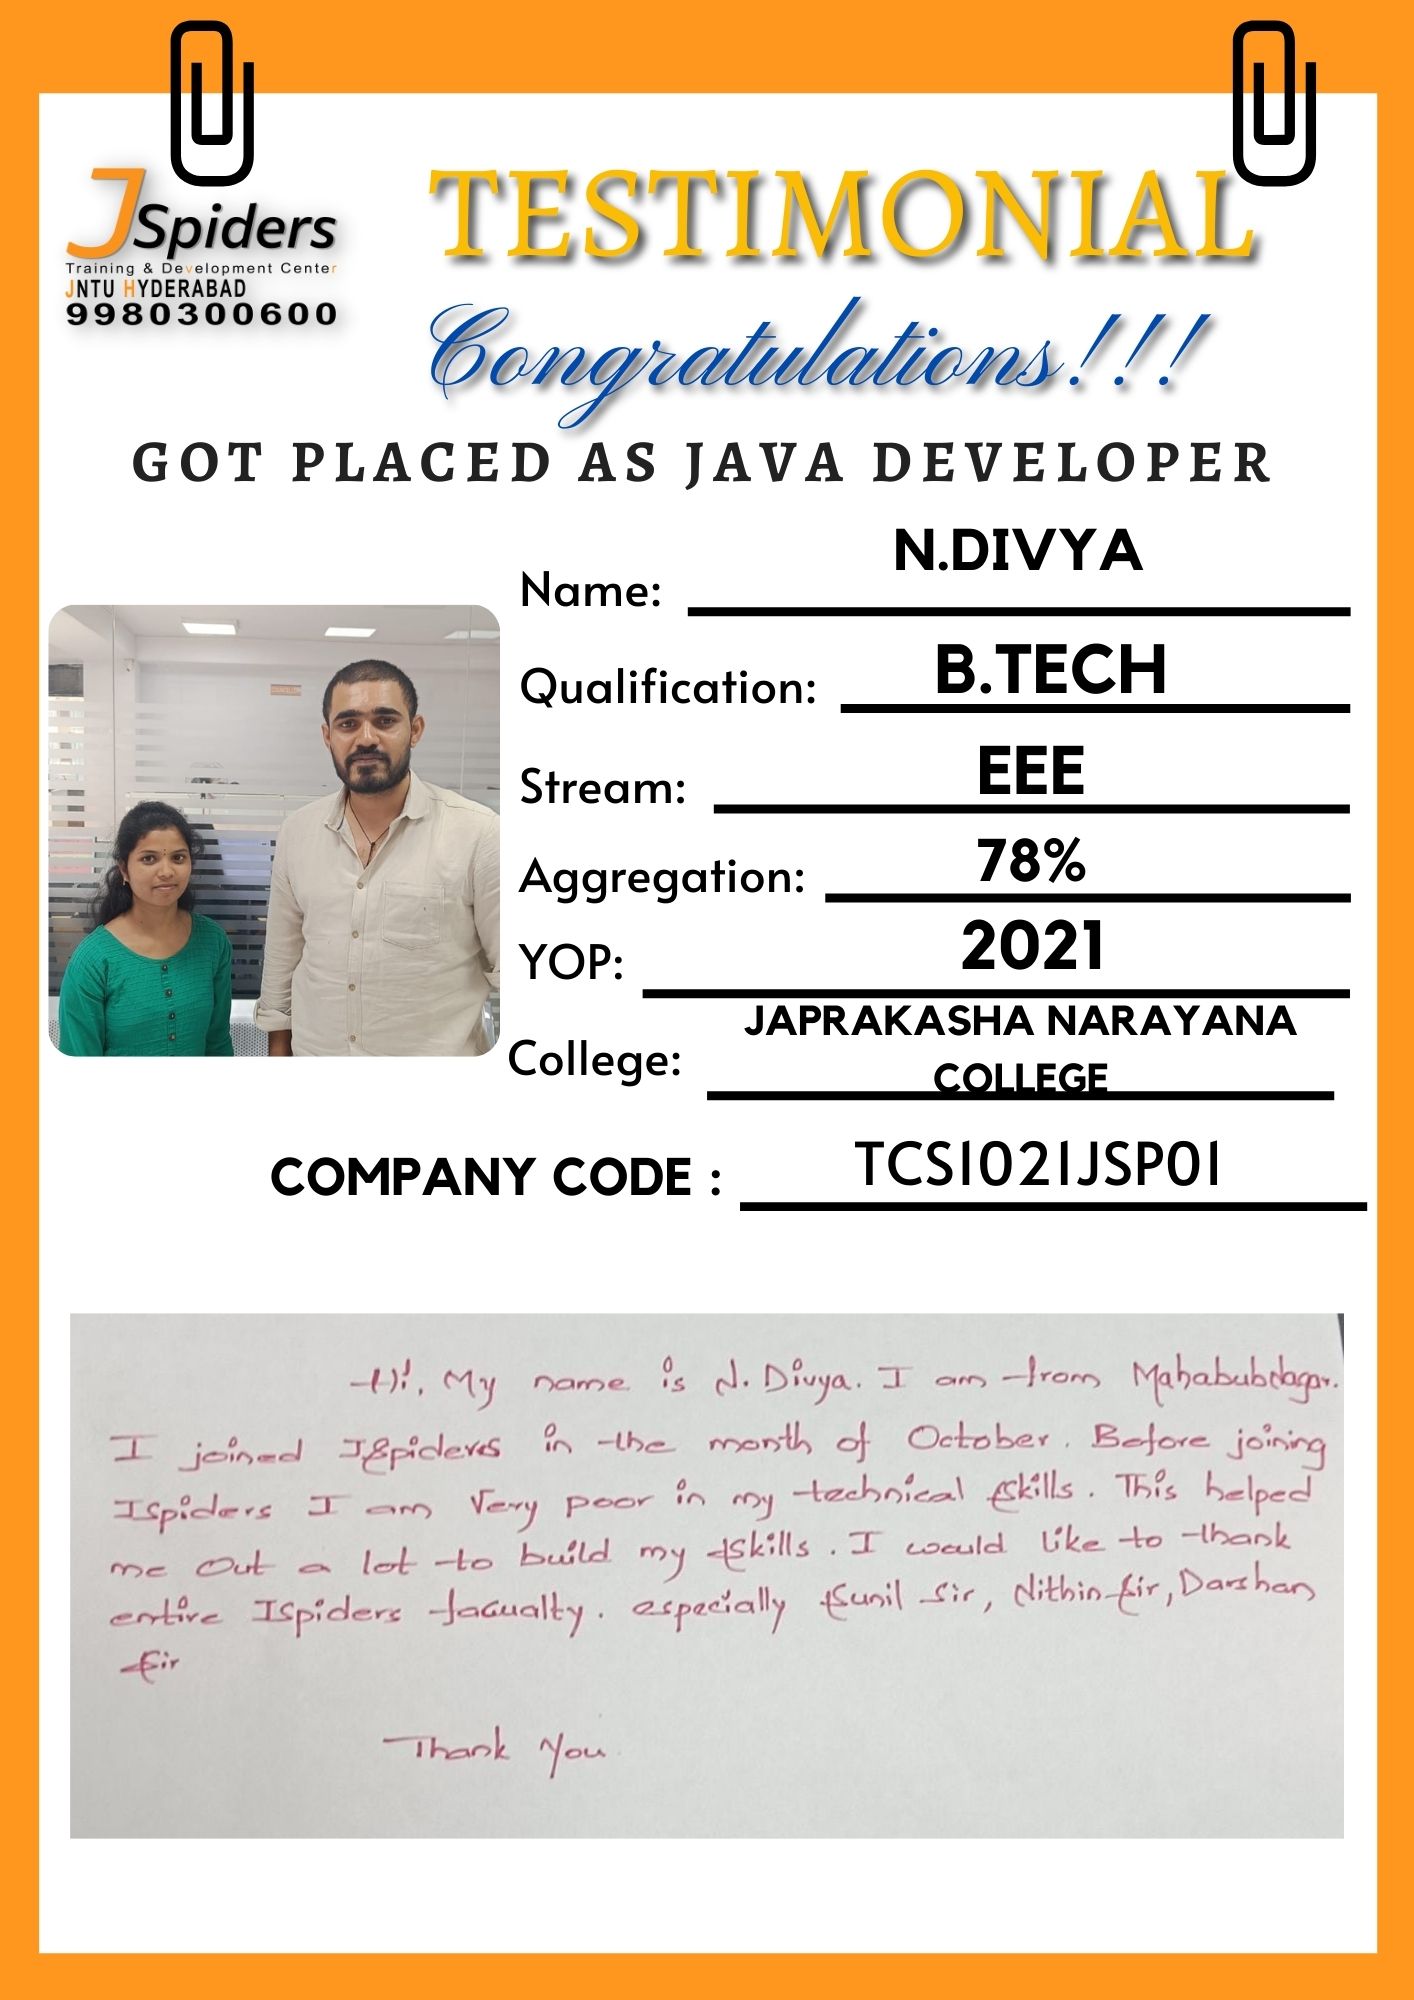 JSpiders
Training & Development Center
JNTU HYDERABAD
9980300600
TESTIMONIAL
Congratulations!!!
GOT PLACED AS JAVA DEVELOPER
Name: N.DIVYA
Qualification: B.TECH
Stream: EEE
Aggregation: 78%
YOP: 2021
College: JAPRAKASHA NARAYANA
COLLEGE
COMPANY CODE : TCS1021JSP01
Hi, My name is N. Divya. I am from Mahabubnagar.
I joined JSpiders in the month of October. Before joining
JSpiders I am Very poor in my technical skills. This helped
me out a lot to build my skills. I would like to thank
entire JSpiders facualty. especially Sunil Sir, Nithin Sir, Darshan
Sir
Thank You